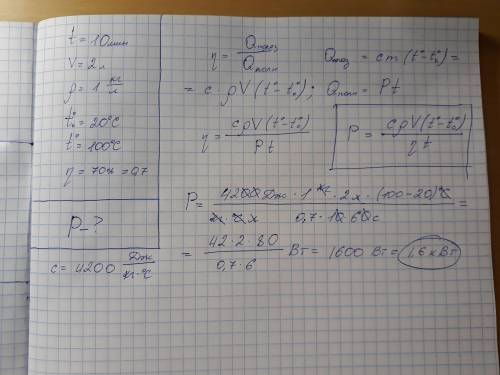 t = 10 мин
V = 2 л
ρ = 1 кг/л
t₀° = 20°C
t° = 100°C
η = 70% = 0,7
P - ?
c = 4200 Дж/(кг·°C)
η = Qполез/Qполн Qполез = cm(t° - t₀°) =
= c · ρV(t° - t₀°); Qполн = Pt
η = cρV(t° - t₀°)/Pt P = cρV(t° - t₀°)/ηt
P = 4200 Дж · 1 кг · 2 л · (100 - 20)°C / кг · °C · л 0,7 · 10 · 60 c =
= 42 · 2 · 80/0,7 · 6 Вт = 1600 Вт = 1,6 кВт